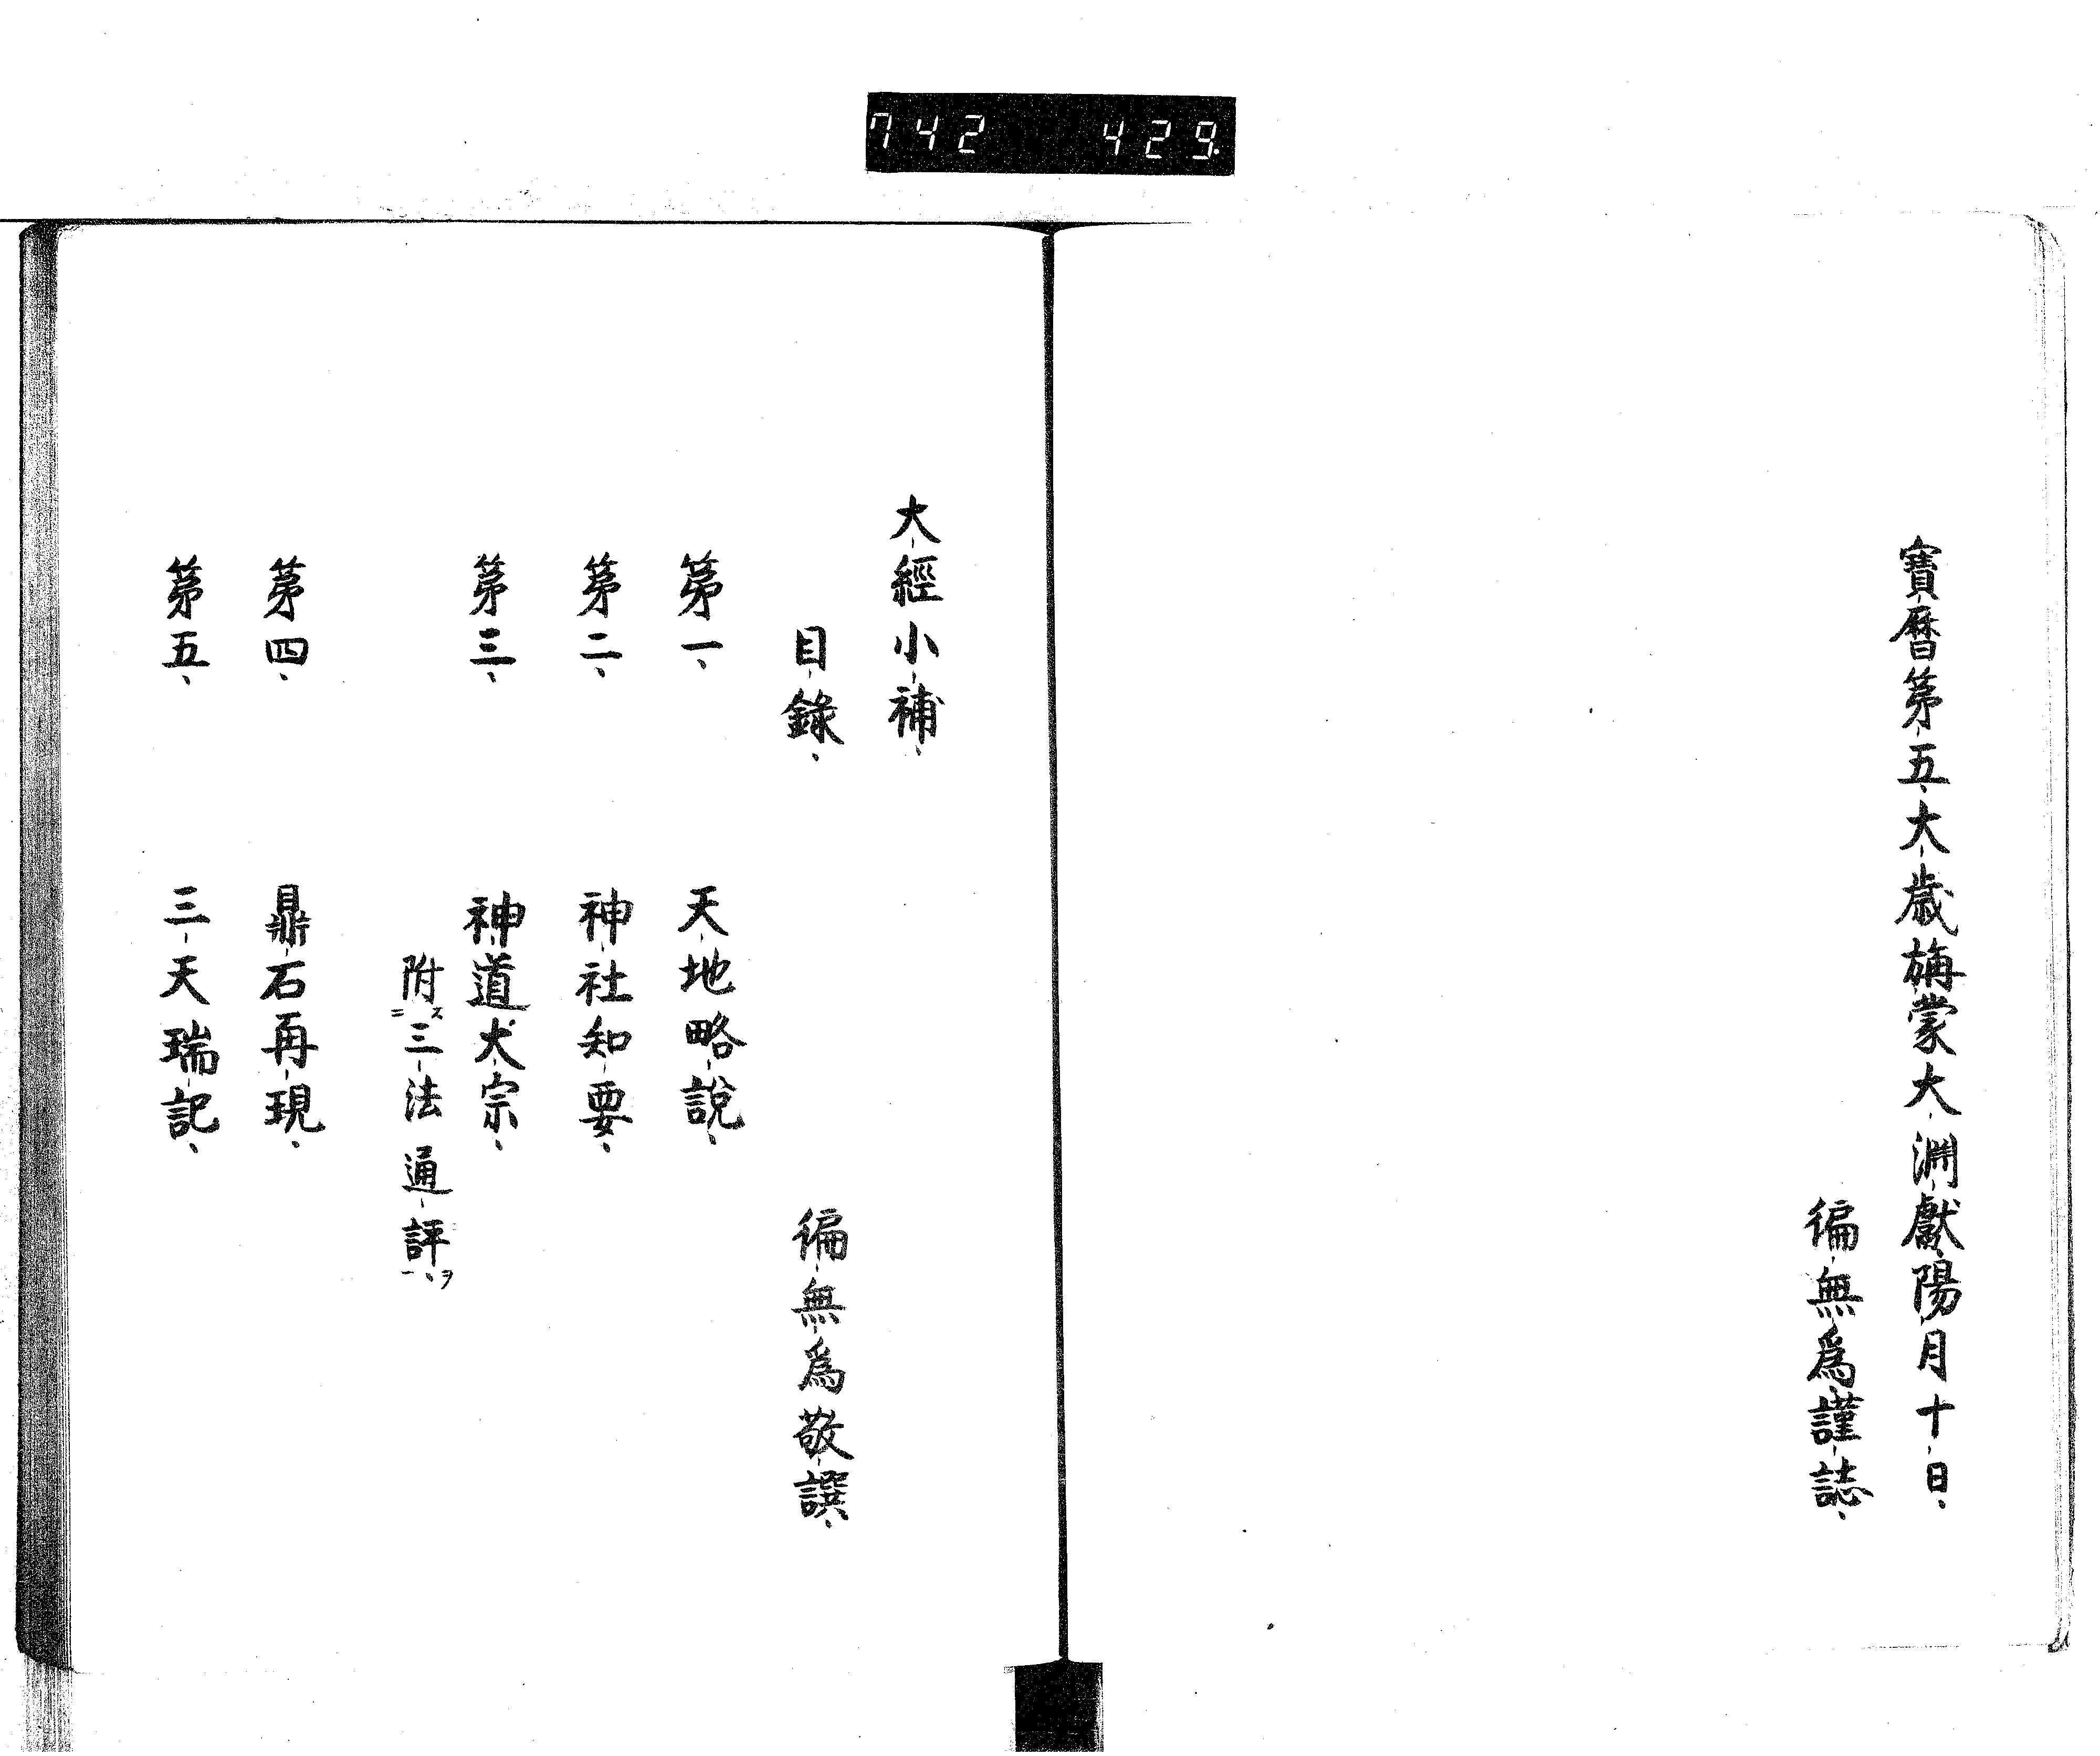 742 429
寶暦第五大歳旃蒙大淵獻陽月十日、
徧無爲謹誌、
大經小補、
目錄、
徧無爲敬譔、
第一、 天地略說、
第二、 神社知要、
第三、 神道大宗、
附ス三法通評ヲ、
第四、 鼎石再現、
第五、 三天瑞記、